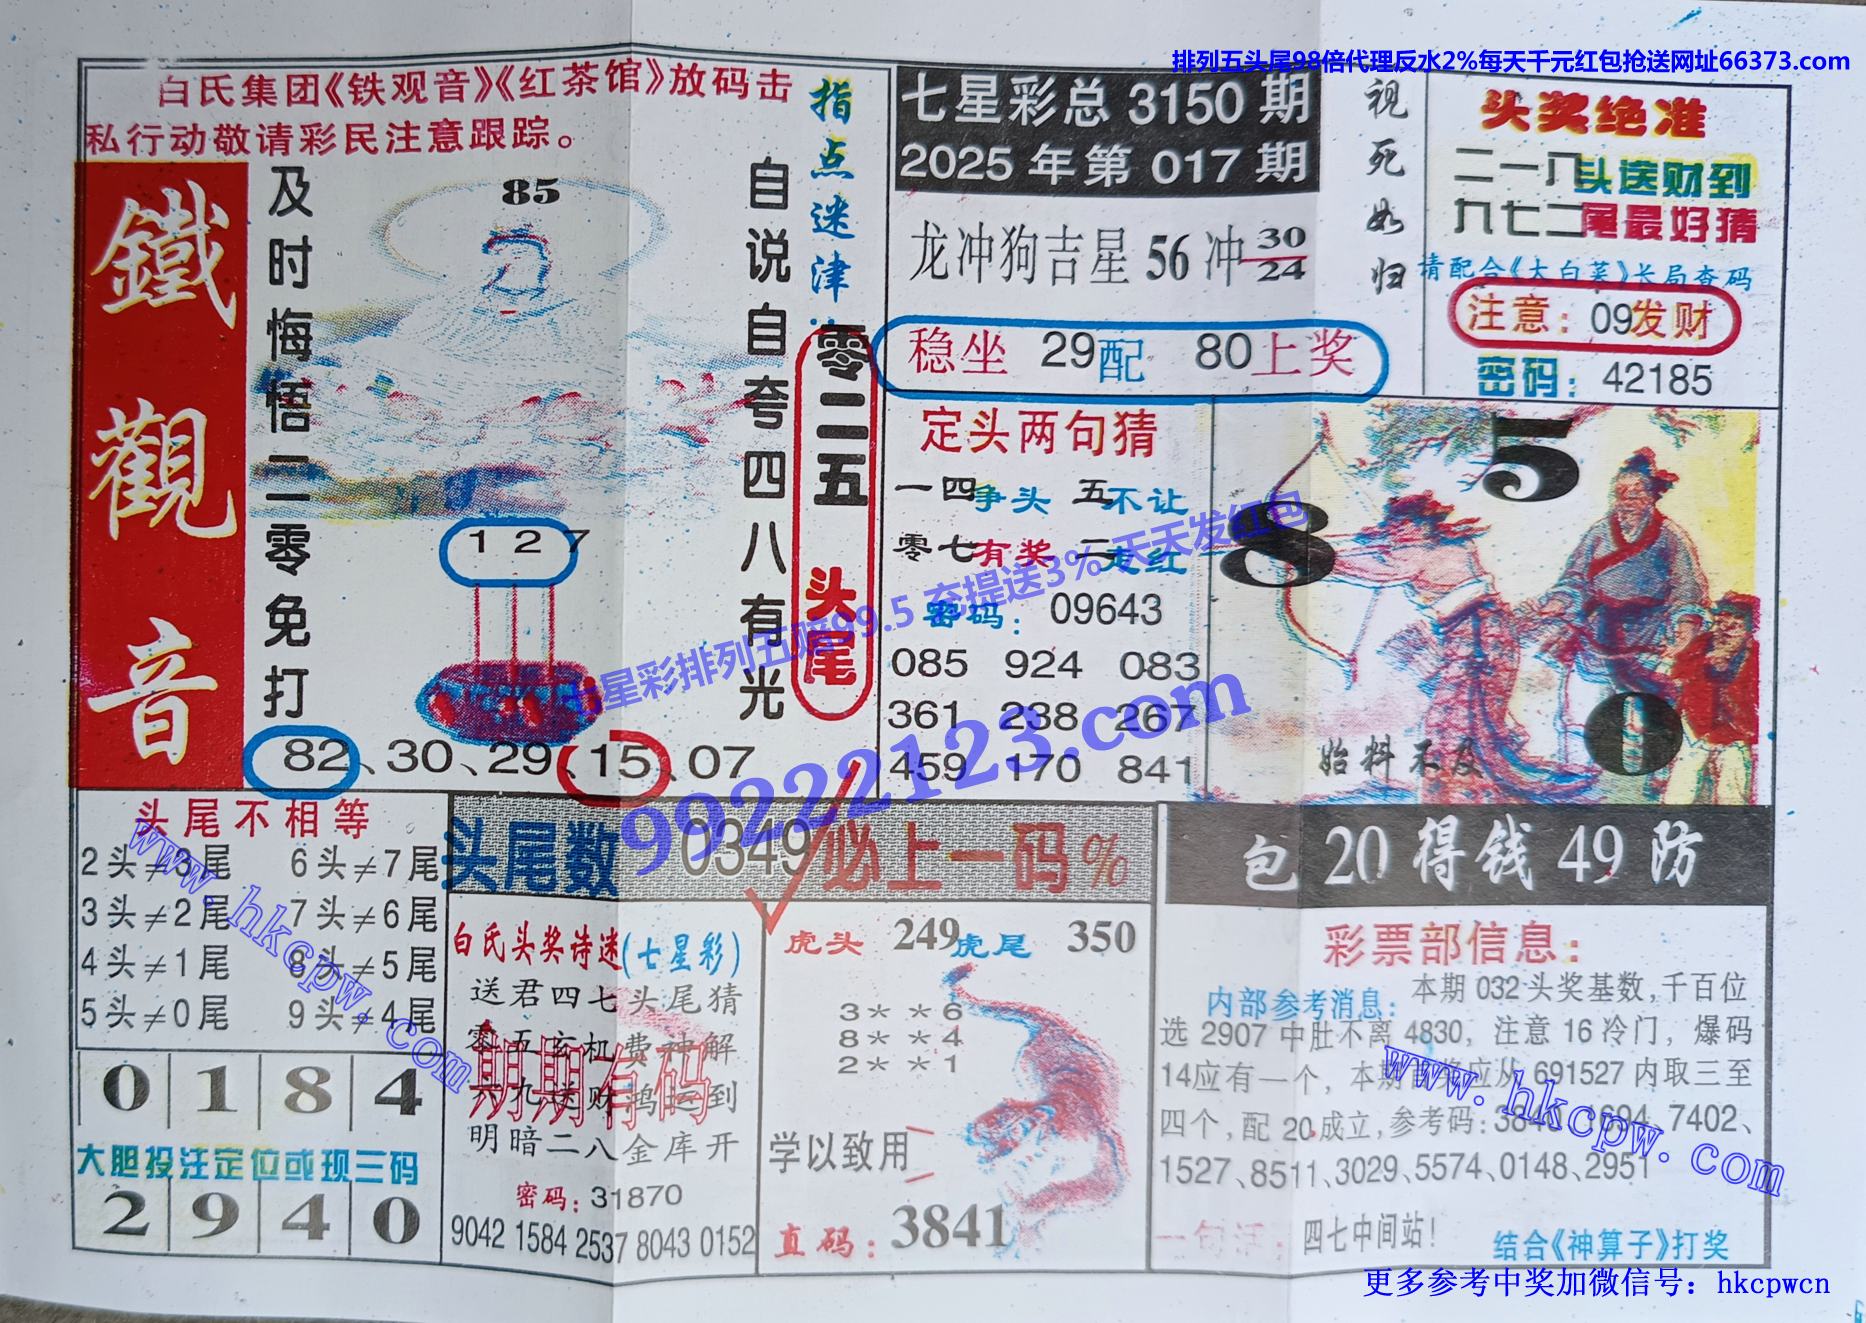 排列五头尾98倍代理反水2%每天千元红包抢送网址66373.com
白氏集团《铁观音》《红茶馆》放码击
私行动敬请彩民注意跟踪。
鐵觀音
及时悔悟二零免打
85
127
自说自夸四八有光
指点迷津
零二五 头尾
82、30、29、15、07
七星彩总 3150 期
2025 年第 017 期
龙冲狗吉星 56 冲 30
24
稳坐 29配 80上奖
视死如归
头奖绝准
二一八头送财到
九七二尾最好猜
请配合《大白菜》长局查码
注意：09发财
密码：42185
定头两句猜
一四争头 五不让
零七有奖 二走红
密码：09643
085 924 083
361 238 267
459 170 841
5
8
0
始料不及
七星彩排列五赔99.5 充提送3% 天天发红包
99222123.com
头尾不相等
2头≠3尾 6头≠7尾
3头≠2尾 7头≠6尾
4头≠1尾 8头≠5尾
5头≠0尾 9头≠4尾
0 1 8 4
大胆投注定位或现三码
2 9 4 0
头尾数 0349 必上一码%
白氏头奖诗迷(七星彩)
送君四七头尾猜
零五玄机费神解
六九送财鸿运到
明暗二八金库开
期期有码
密码：31870
9042 1584 2537 8043 0152
虎头 249 虎尾 350
3**6
8**4
2**1
学以致用
直码：3841
包 20 得钱 49 防
彩票部信息：
内部参考消息：本期 032头奖基数,千百位
选 2907 中肚不离 4830，注意 16 冷门，爆码
14应有一个，本期首奖应从 691527 内取三至
四个，配 20 成立，参考码：3840、1694、7402、
1527、8511、3029、5574、0148、2951
一句话：四七中间站！
结合《神算子》打奖
www.hkcpw.com
www.hkcpw.com
更多参考中奖加微信号：hkcpwcn